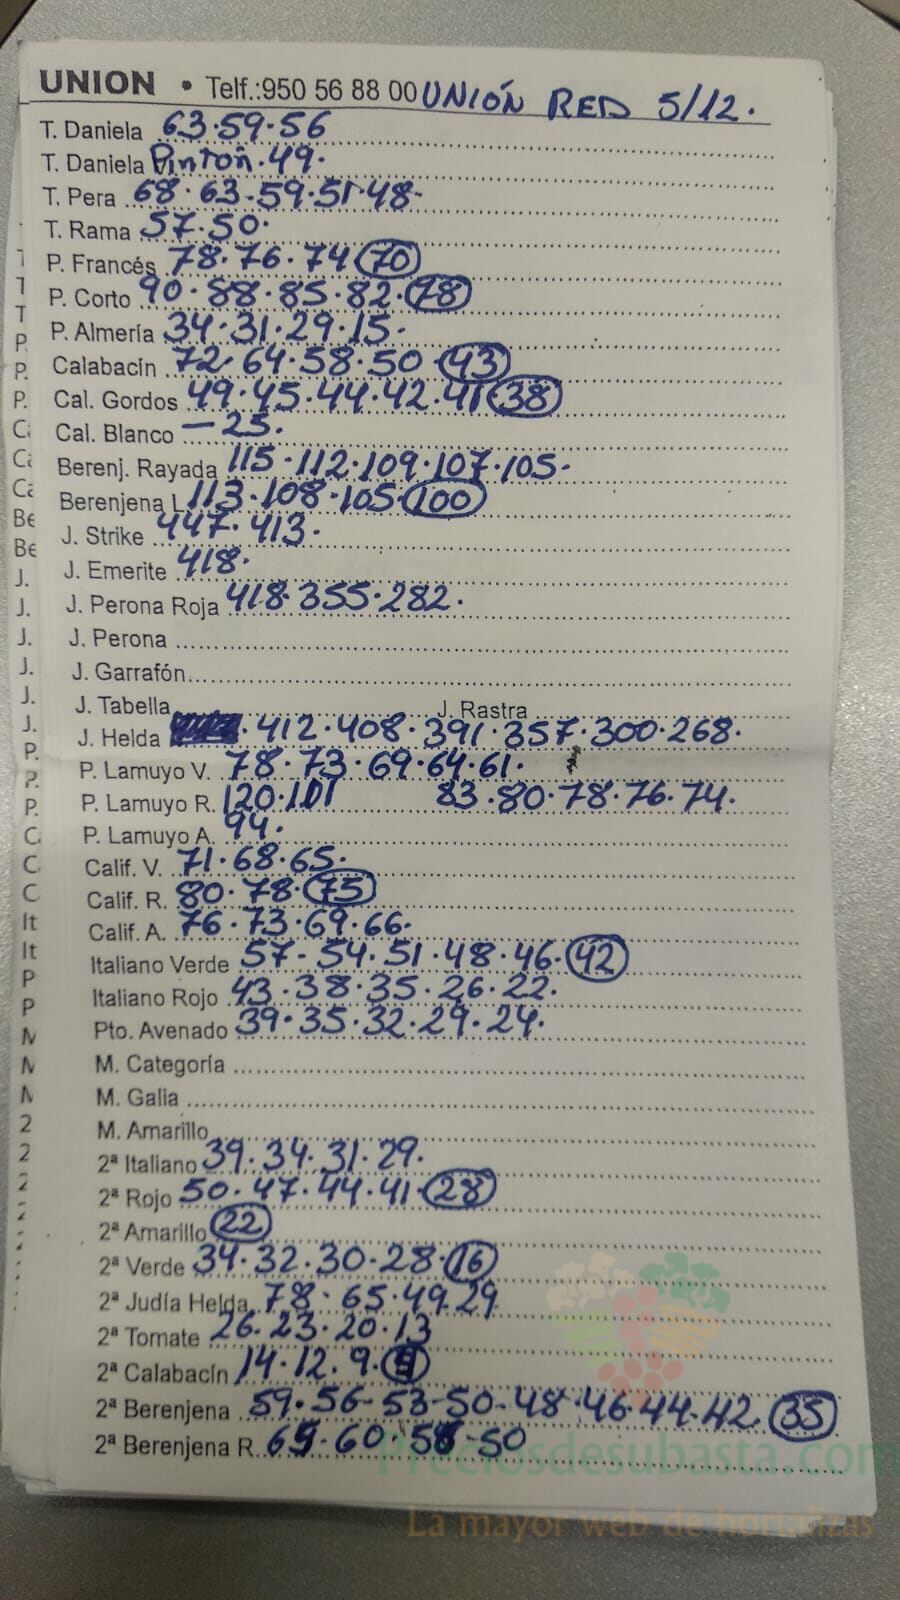 UNION • Telf.:950 56 88 00 UNIÓN RED 5/12.
T. Daniela 63.59.56
T. Daniela Pinton.49.
T. Pera 68.63.59.51.48.
T. Rama 57.50.
P. Francés 78.76.74 70
P. Corto 90.88.85.82.78
P. Almería 34.31.29.15.
Calabacín 72.64.58.50.43
Cal. Gordos 49.45.44.42.41 38
Cal. Blanco —25.
Berenj. Rayada 115.112.109.107.105.
Berenjena L 113.108.105.100
J. Strike 447.413.
J. Emerite 418.
J. Perona Roja 418.355.282.
J. Perona
J. Garrafón
J. Tabella J. Rastra
J. Helda .412.408.391.357.300.268.
P. Lamuyo V. 78.73.69.64.61.
P. Lamuyo R. 120.101 83.80.78.76.74.
P. Lamuyo A. 94.
Calif. V. 71.68.65.
Calif. R. 80.78.75
Calif. A. 76.73.69.66.
Italiano Verde 57.54.51.48.46.42
Italiano Rojo 43.38.35.26.22.
Pto. Avenado 39.35.32.29.24.
M. Categoría
M. Galia
M. Amarillo
2ª Italiano 39.34.31.29.
2ª Rojo 50.47.44.41.28
2ª Amarillo 22
2ª Verde 34.32.30.28.16
2ª Judía Helda 78.65.49.29
2ª Tomate 26.23.20.13
2ª Calabacín 14.12.9.
2ª Berenjena 59.56-53-50.48.46.44.42.35
2ª Berenjena R. 60 50
Preciosdesubasta.com
La mayor web de hortalizas